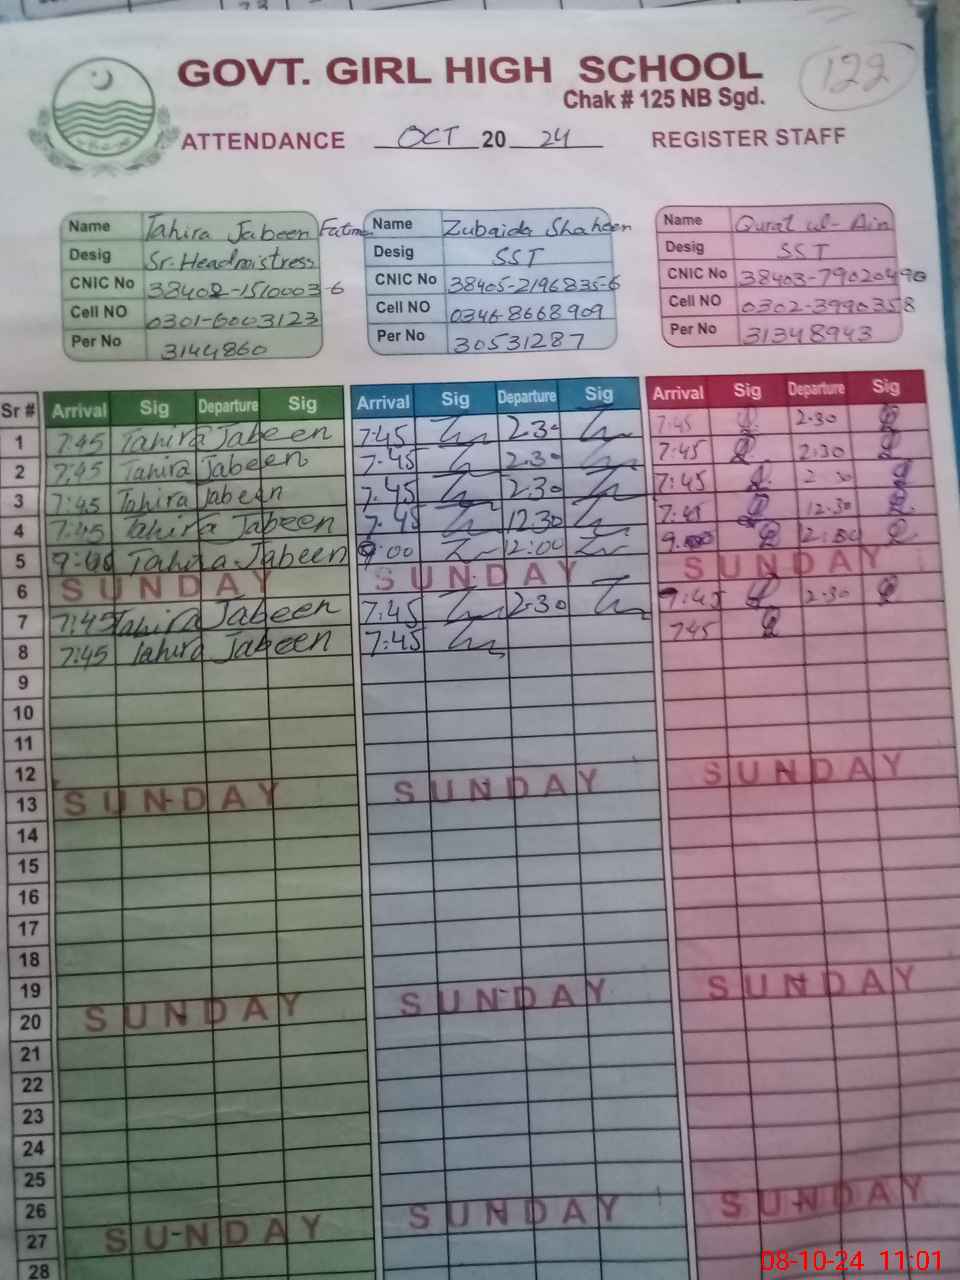 GOVT. GIRL HIGH SCHOOL
122
Chak # 125 NB Sgd.
ATTENDANCE OCT 20 24 REGISTER STAFF
Name Tahira Jabeen Fatima Name Zubaida Shaheen Name Qurat ul- Ain
Desig Sr. Headmistress Desig SST Desig SST
CNIC No 38402-1510003-6 CNIC No 38405-2196835-6 CNIC No 38403-79020490
Cell NO 0301-6003123 Cell NO 0346-8668909 Cell NO 0302-3990358
Per No 3144860 Per No 30531287 Per No 31348943
Sr # Arrival Sig Departure Sig Arrival Sig Departure Sig Arrival Sig Departure Sig
1 7:45 Tahira Jabeen 7:45 2:30 7:45 2:30
2 7:45 Tahira Jabeen 7:45 2:30 7:45 2:30
3 7:45 Tahira Jabeen 7:45 2:30 7:45 2 30
4 7:45 Tahira Jabeen 7:45 12:30 7:45 12:30
5 Tahira Jabeen 9:00 12:00
6 SUNDAY SUNDAY SUNDAY
7 7:45 Tahira Jabeen 7:45 2:30 7:45 2:30
8 7:45 Tahira Jabeen 7:45 7:45
9
10
11
12
13 SUNDAY SUNDAY SUNDAY
14
15
16
17
18
19
20 SUNDAY SUNDAY SUNDAY
21
22
23
24
25
26
27 SUNDAY SUNDAY SUNDAY
28
08-10-24 11:01